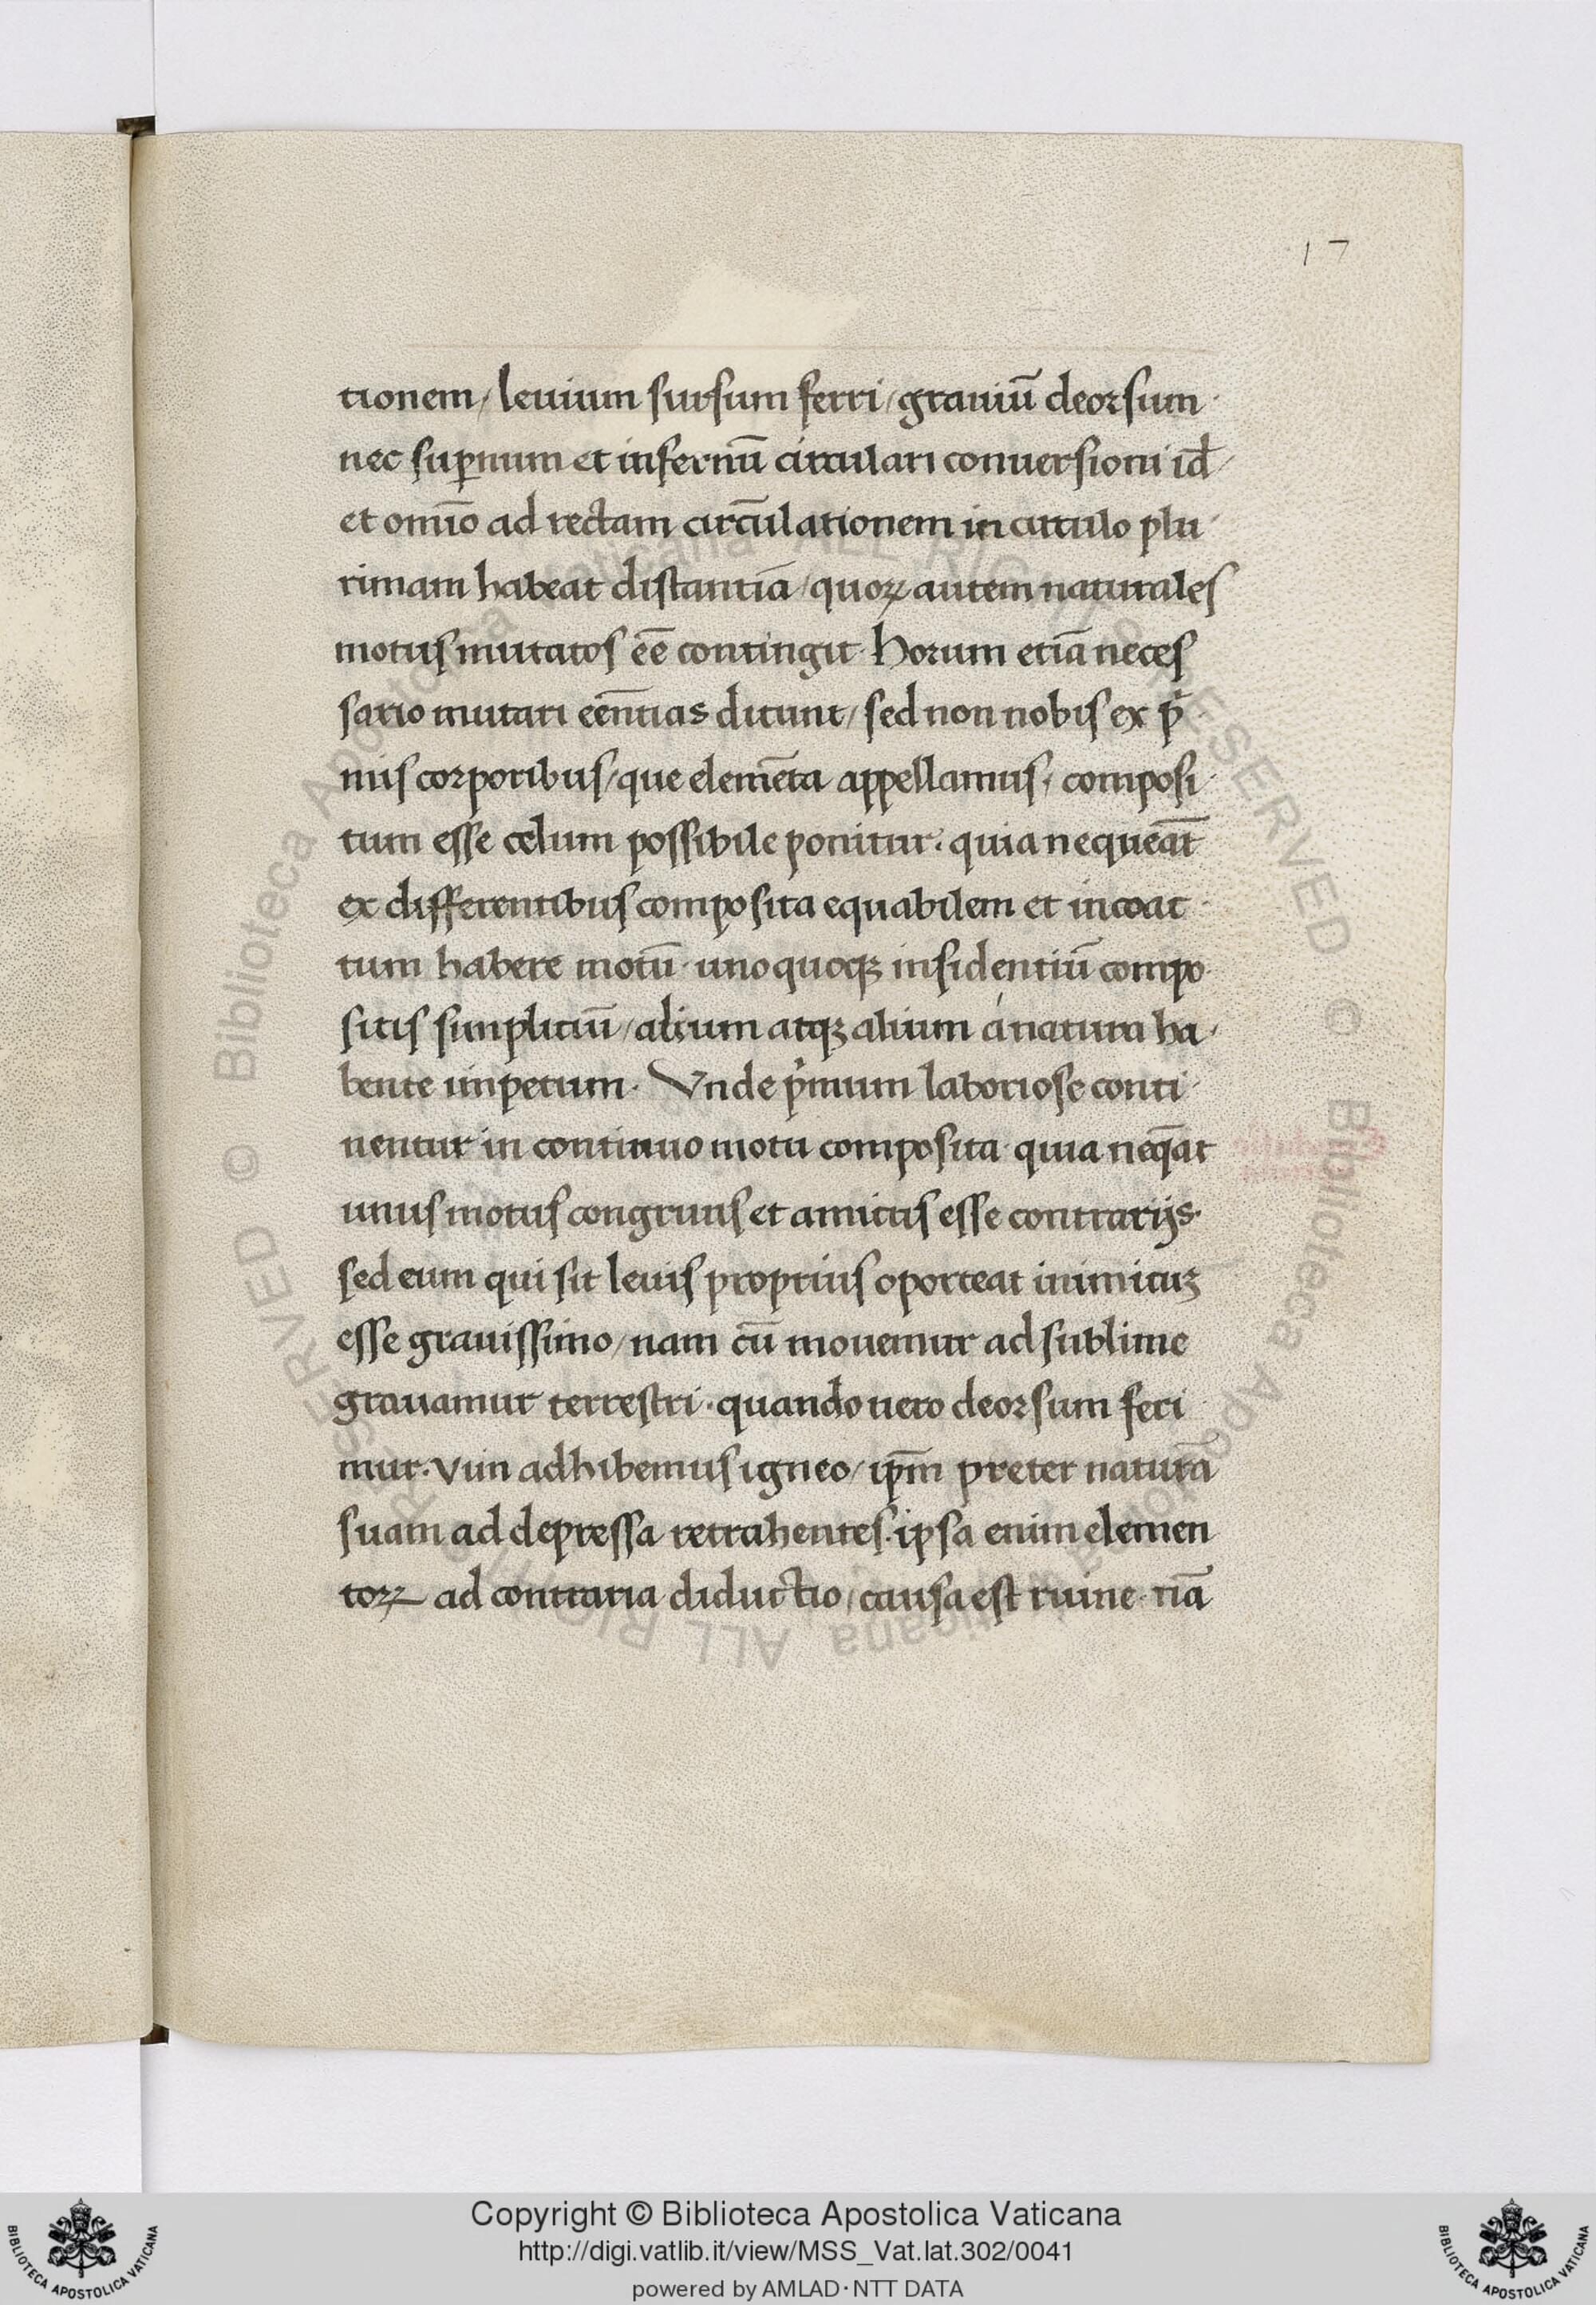 17
tionem / leuium sursum ferri / grauiū deorsum
nec suꝑnum et infernū circulari conuersioni id
et omīo ad rectam circūlationem in circulo plu
rimam habeat distantiā / quoꝝ autem naturales
motus mutatos eē̄ contingit. Horum etiā neces
sario mutari eēntias dicunt / sed non nobis ex p̄
mis corporibus / que elemēta appellamus, composi
tum esse celum possibile ponitur. quia nequeāt
ex differentibus composita equabilem et incoac
tum habere motū. uno quoqꝫ insidentiū compo
sitis simplitiū / alium atqꝫ alium á natura ha
bente impetum. Vnde p̄mum laboriose conti
nentur in continuo motu composita. quia neq̄at
unus motus congruus et amicus esse contrarijs.
sed eum qui sit leuis proprius oporteat inimicuꝫ
esse grauissimo / nam cū mouemur ad sublime
grauamur terrestri. quando uero deorsum feri
mur. vim adhibemus igneo / ip̄m preter naturā
suam ad depressa retrahentes. ipsa enim elemen
toꝝ ad contraria diductio / causa est ruine. nā
Copyright © Biblioteca Apostolica Vaticana
http://digi.vatlib.it/view/MSS_Vat.lat.302/0041
powered by AMLAD·NTT DATA
BIBLIOTECA APOSTOLICA VATICANA
BIBLIOTECA APOSTOLICA VATICANA